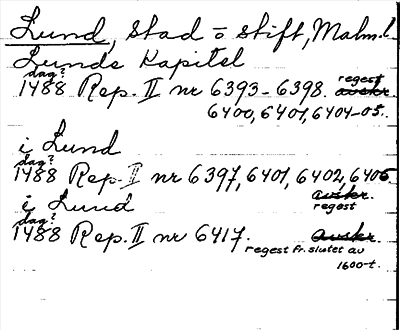 Lund, Stad o stift, Malm. l.
Lunds Kapitel
dag?
1488 Rep. II nr 6393-6398. regest
avskr.
6400, 6401, 6404-05.
i Lund
dag?
1488 Rep. II nr 6397, 6401, 6402, 6405
avskr.
regest
i Lund
dag?
1488 Rep. II nr 6417. avskr.
regest fr. slutet av
1600-t.